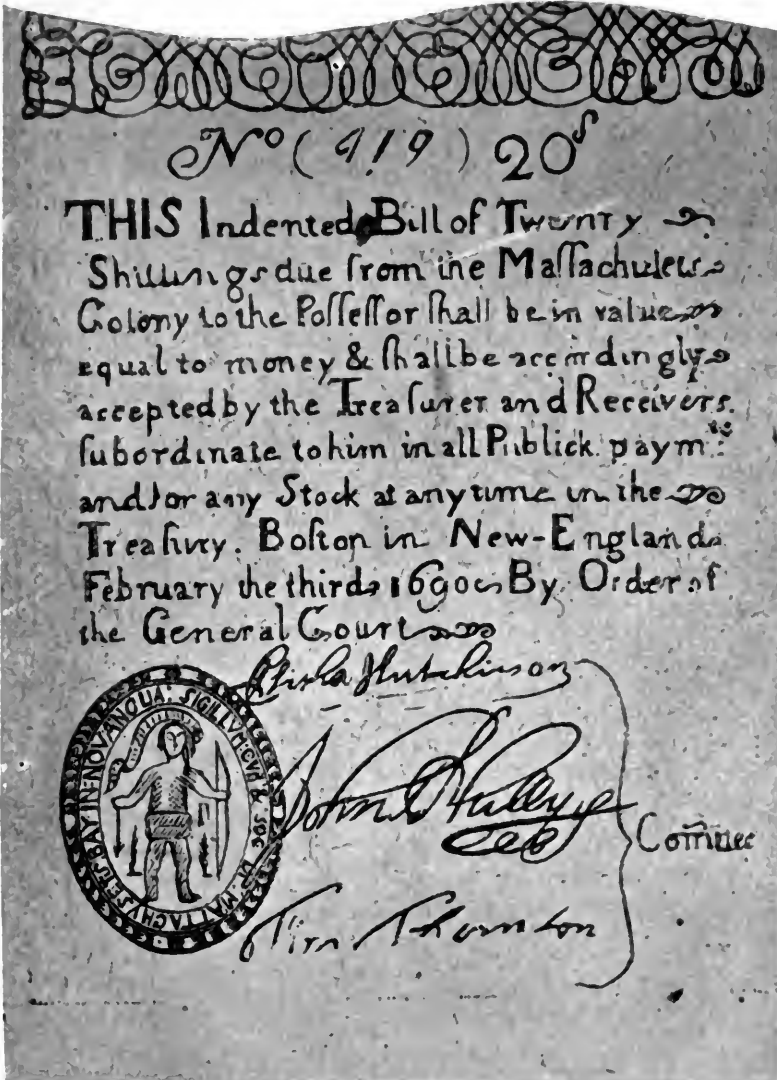 No (919) 20s
THIS Indented Bill of Twenty
Shillings due from the Maſſachuſets
Colony to the Poſſeſſor ſhall be in value
equal to money & ſhall be accordingly
accepted by the Treaſurer and Receivers
ſubordinate to him in all Publick paymts
and for any Stock at any time in the
Treaſury. Boſton in New-England
February the third 1690 By Order of
the General Court
Elisha Hutchinson
John
Comittee
Tim Thornton
SIGILLVM: GVB & SOC DE MATTACHVSETS BAY IN NOV ANGLIA